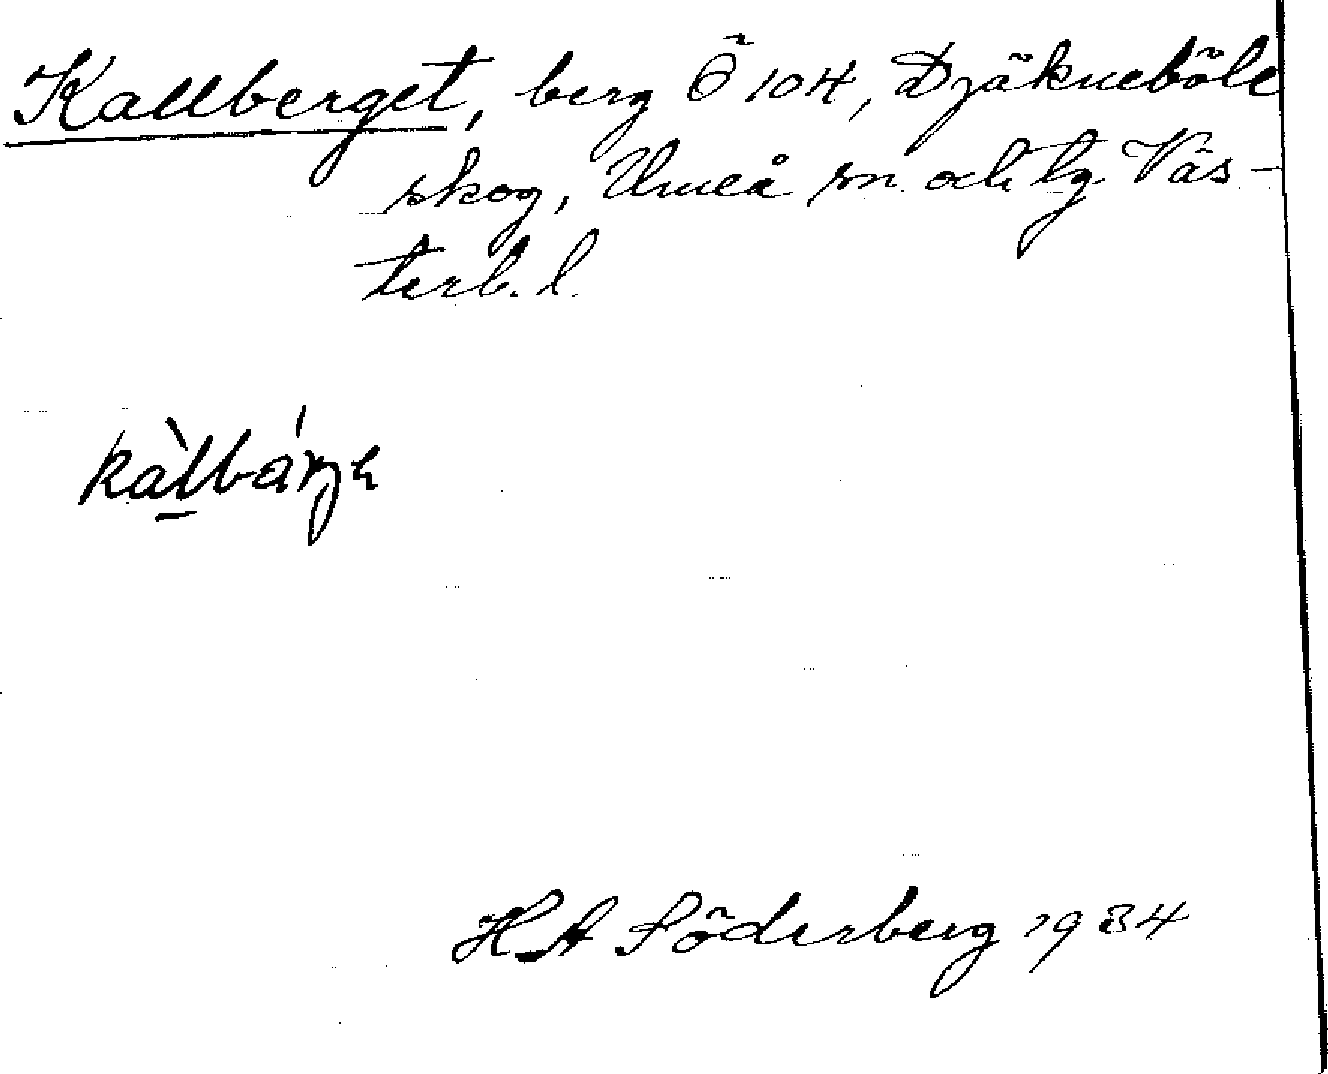 Kallberget, berg Ö 104, Djäkneböle
skog, Umeå sn och tg. Väs-
terb. l.
H A Söderberg 1934